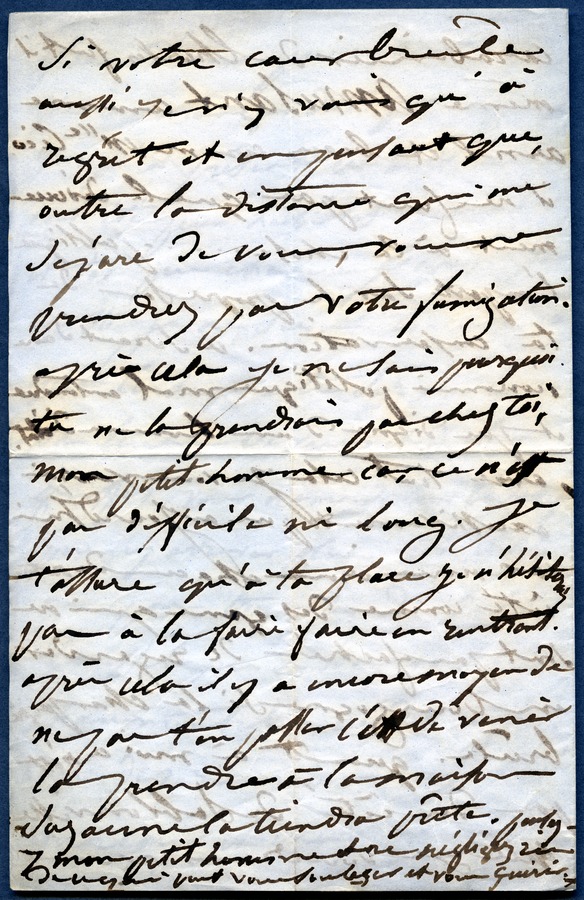 Si votre cœur brûle
aussi j'en y vais qu'à
regret et en pensant que,
outre la distance qui me
sépare de vous, vous ne
prendrez pas votre fumigation.
après cela je ne sais pourquoi
tu ne la prendrais pas chez toi,
mon petit homme car ce n'est
pas difficile ni long. Je
t'assure qu'à ta place je n'hésiterais
pas à la faire faire en rentrant.
après cela il y a encore moyen de
ne pas t'en passer c'est de venir
la prendre à la maison
Suzanne la tiendra prête.
mon petit homme ne négligez rien
de ce qui peut vous soulager et vous guérir